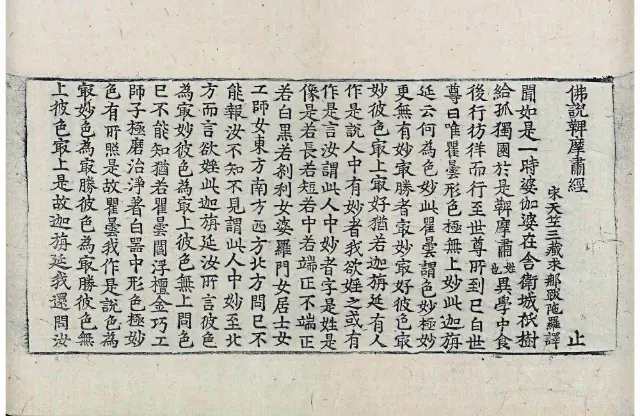 佛說鞞摩肅經 止
宋天竺三藏求那跋陁羅譯
聞如是一時婆伽婆在舍衛城祇樹
給孤獨園於是鞞摩肅姓也異學中食
後行彷徉而行至世尊所到已白世
尊曰唯瞿曇形色極無上妙此迦旃
延云何為色妙此瞿曇謂色妙極妙
更無有妙㝡勝者㝡妙㝡好彼色㝡
妙彼色㝡上㝡好猶若迦旃延有人
作是說人中有妙者我欲婬之或有
作是言汝謂此人中妙者字是姓是
像是若長若短若中若端正不端正
若白黑若剎利女婆羅門女居士女
工師女東方南方西方北方問已不
能報汝不知不見謂此人中妙至北
方而言欲婬此迦旃延汝所言彼色
為㝡妙彼色為㝡上彼色無上問色
已不能知猶若瞿曇閻浮檀金巧工
師子極磨治淨著白器中形色極妙
色有所照是故瞿曇我作是說色為
㝡妙色為㝡勝彼色為㝡勝彼色無
上彼色㝡上是故迦旃延我還問汝